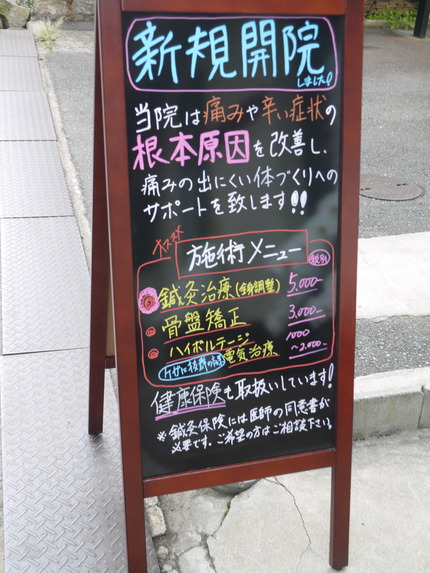 新規開院
しました!
当院は痛みや辛い症状の
根本原因を改善し、
痛みの出にくい体づくりへの
サポートを致します!!
オススメ
施術メニュー
税別
鍼灸治療(全身調整) 5,000-
骨盤矯正 3,000-
ハイボルテージ 1000
ケガに抜群の効果 電気治療 〜2,000-
健康保険も取扱いしています!
※鍼灸保険には医師の同意書が
必要です。ご希望の方はご相談下さい。